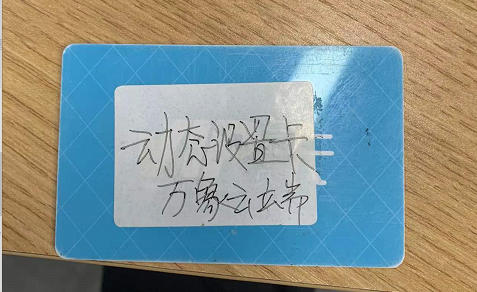 动态设置卡
万象云立端